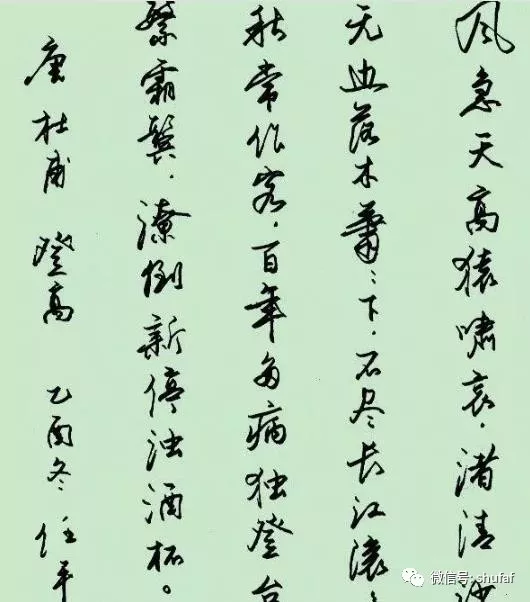 风急天高猿啸哀，渚清沙
无边落木萧〻下，不尽长江滚〻
秋常作客，百年多病独登台
繁霜鬓，潦倒新停浊酒杯。
唐杜甫 登高 乙酉冬 任平
微信号: shufaf